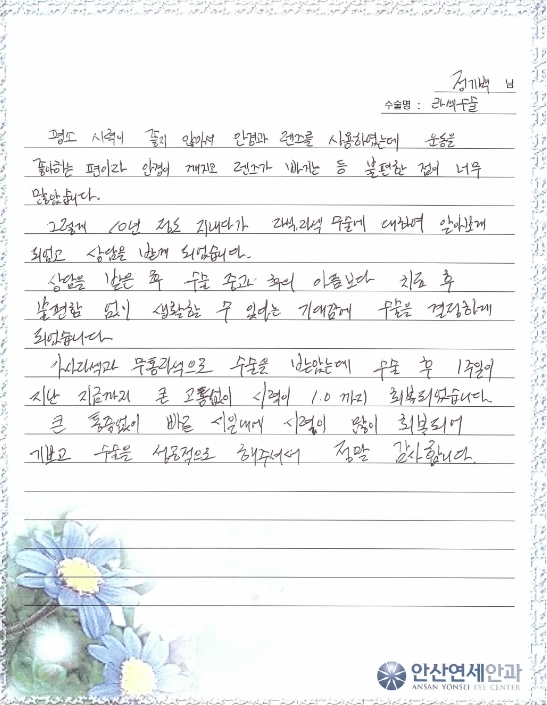 정기백 님
수술명 : 라섹수술
평소 시력이 좋지 않아서 안경과 렌즈를 사용하였는데 운동을
좋아하는 편이라 안경이 깨지고 렌즈가 빠지는 등 불편한 점이 너무
많았습니다.
그렇게 10년 정도 지내다가 라식,라섹 수술에 대하여 알아보게
되었고 상담을 받게 되었습니다.
상담을 받은 후 수술 중과 후의 아픔보다 치료 후
불편함 없이 생활할 수 있다는 기대감에 수술을 결정하게
되었습니다.
무통라섹으로 수술을 받았는데 수술 후 1주일이
지난 지금까지 큰 고통없이 시력이 1.0 까지 회복되었습니다.
큰 통증없이 빠른 시일내에 시력이 많이 회복되어
기쁘고 수술을 성공적으로 해주셔서 정말 감사합니다.
안산연세안과
ANSAN YONSEI EYE CENTER